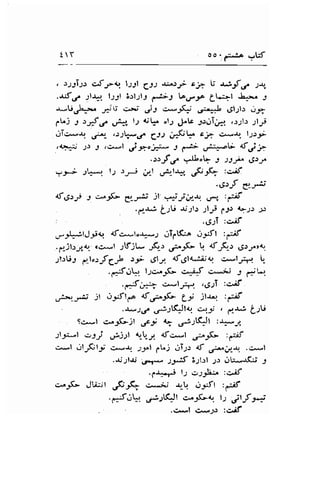 کتاب هشتم ۵۵۰ ۴۱۳
پدر می‌کوشد تا جزء خردمند روح را
و محیط اجتماع هوسها و خشم و اراده او را بیدار می‌کند.
چون دارای طبیعت نیکوست ولی تحت تأثیر
بد قرار دارد، میان آن دو عامل راه پیش می‌گیرد و زمام
خود را بدست جزء میانگین روح می‌سپارد، یعنی بدست آن
جزئی که هم خشم و است، و در نتیجه،
مردی مغرور و جاه‌طلب می‌گردد.
گفت: چگونگی پیدایش این فرد را بسیار خوب
تشریح کردی.
گفتم: پس از تشریح دومین نوع حکومت و مردی که
در درجه دوم قرار دارد فارغ شدیم.
گفت: آری.
گفتم: اکنون هنگام آن است که
«مردی دیگر که با حکومتی دیگر سازگار است» بپردازیم.
یا بهتر است
بیان کنیم و سپس کیفیت را بیان کنیم.
گفت: آری، بهتر است چنین کنیم.
گفتم: بعد از نوع حکومتی که هم‌اکنون از تشریحش
فارغ شدیم، نوبت به الیگارشی می‌رسد.
پرسید: الیگارشی چه نوع حکومتی است؟
گفتم: حکومتی است که بر پایه ارزش ثروت استوار
است. می‌دانیم که در آن زمام امور بدست توانگران است
و تهیدستان ندارند.
گفت: منظورت را فهمیدم.
گفتم: اکنون باید نخست چگونگی انتقال حکومت
را به حکومت الیگارشی بیان کنیم.
گفت: درست است.